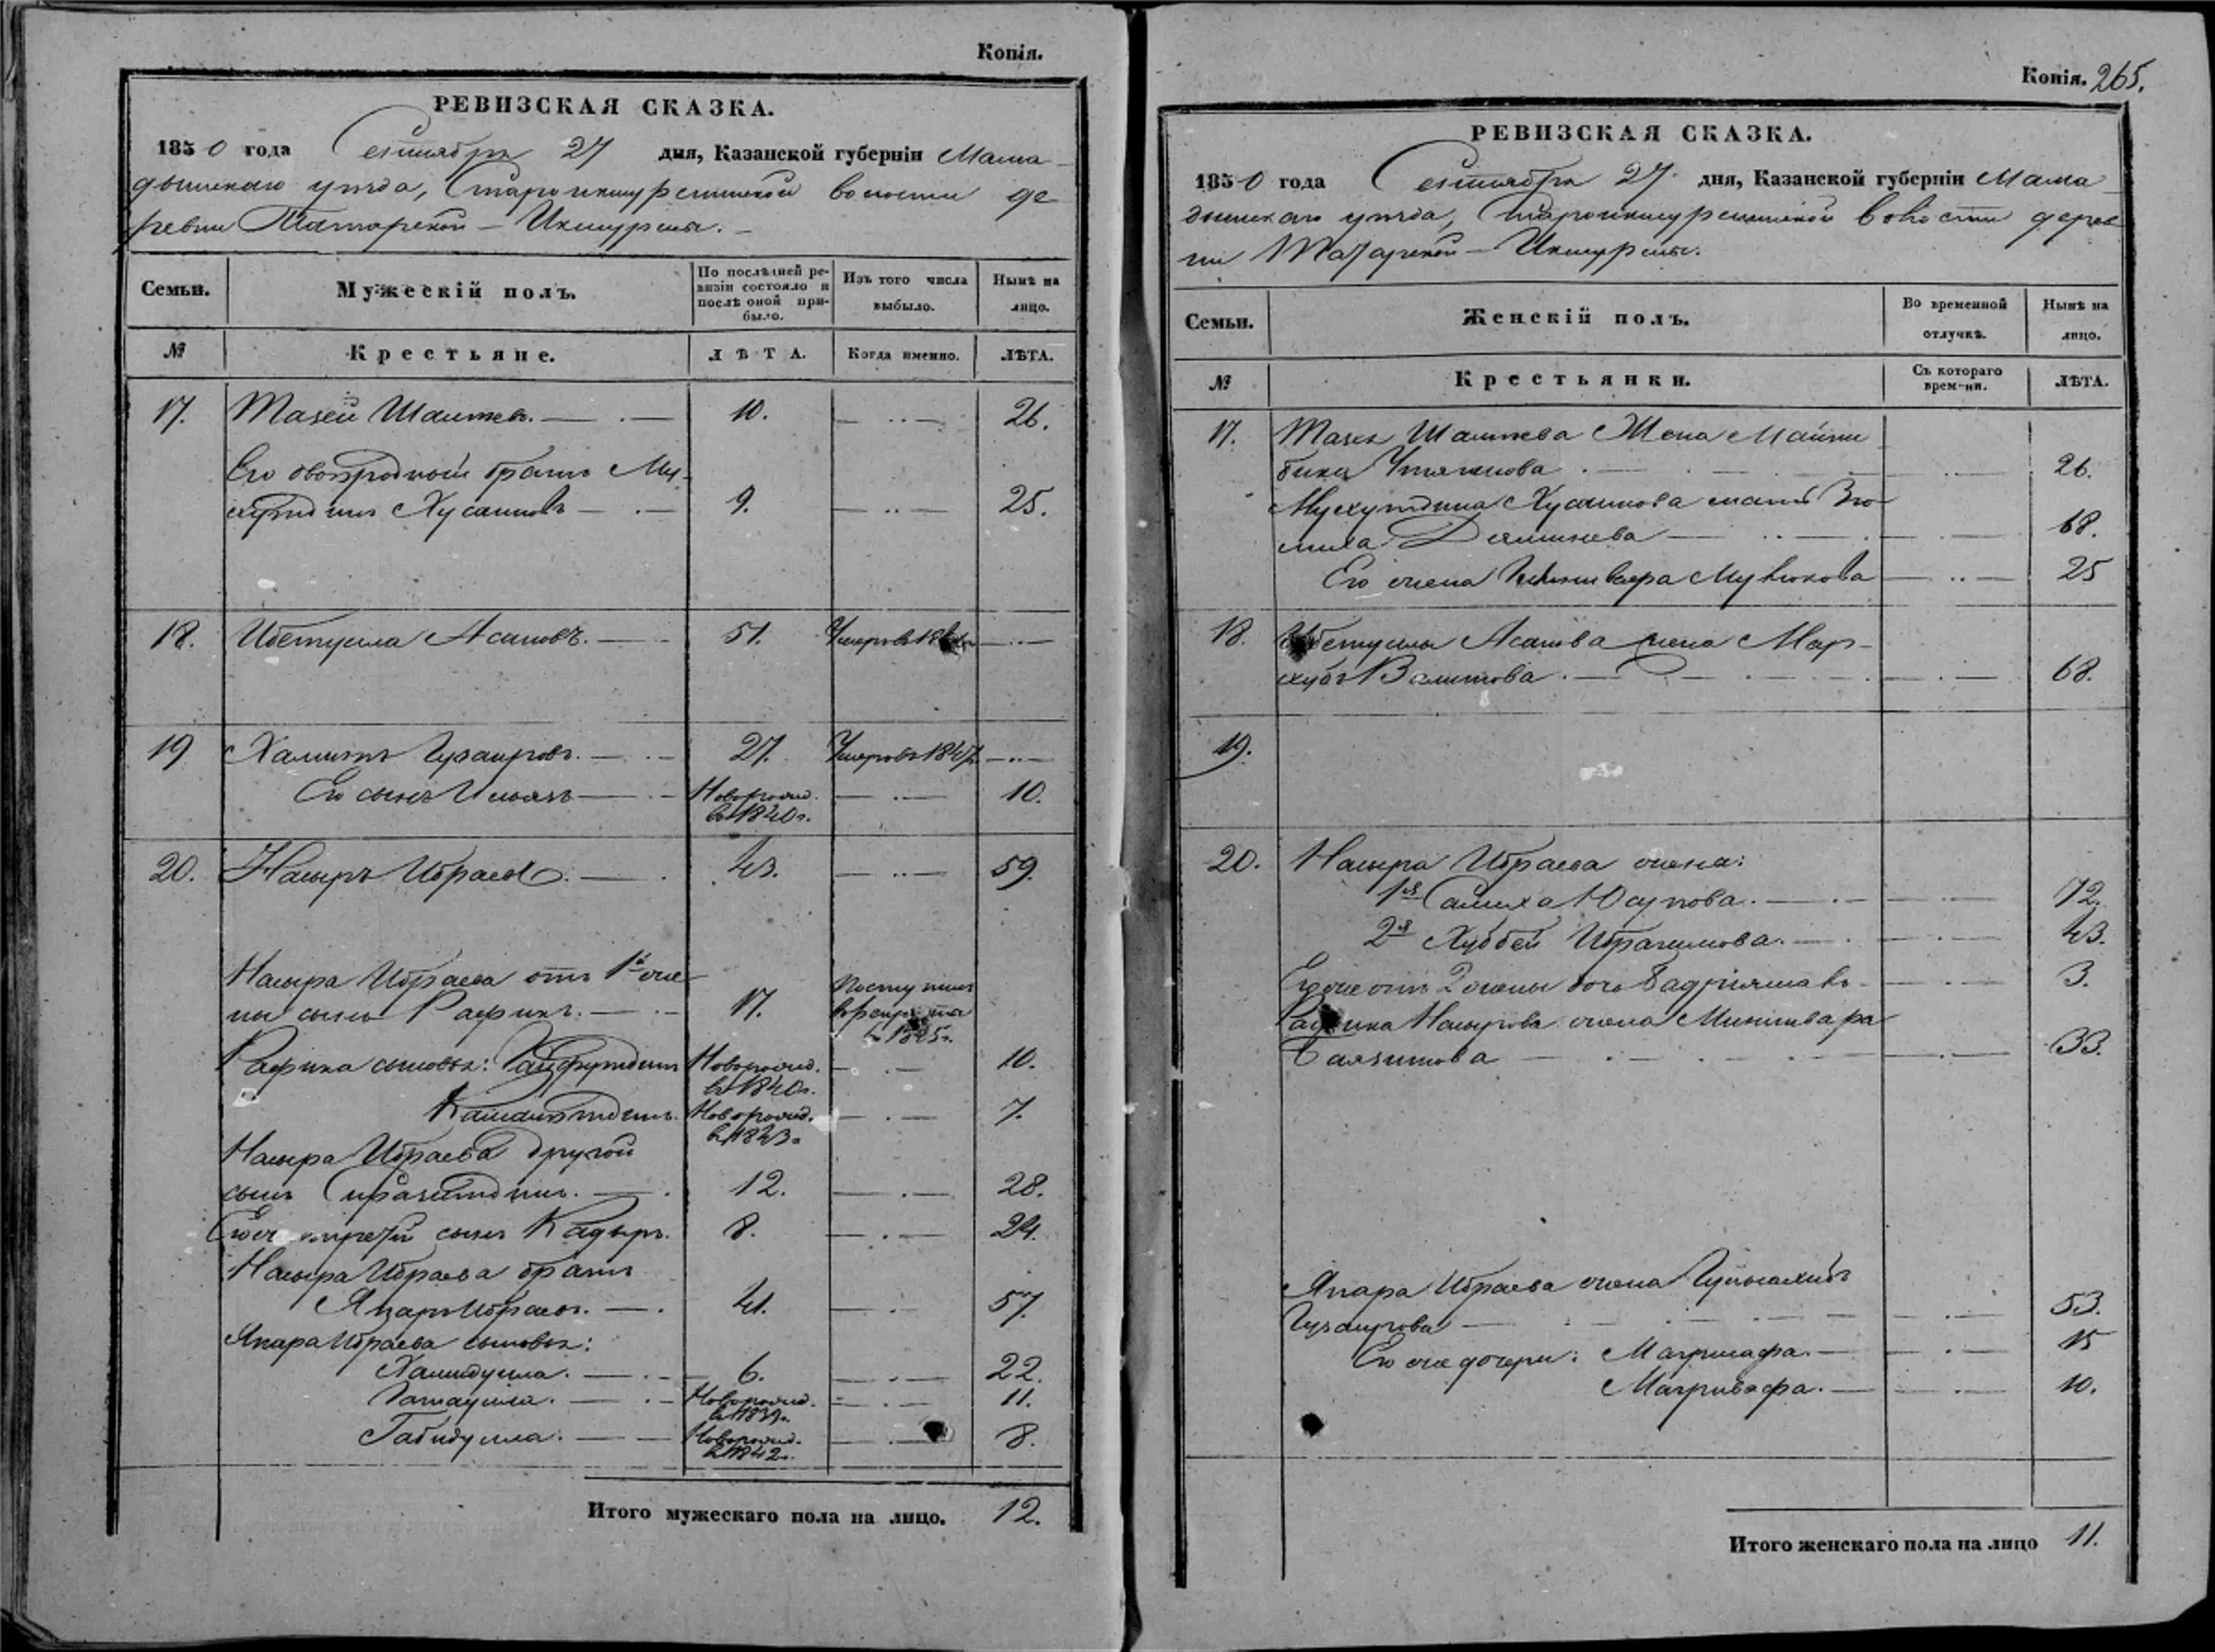 Копія.
РЕВИЗСКАЯ СКАЗКА.
1850 года Сентября 27 дня, Казанской губерніи Мама-
дышскаго уѣзда, Староикшурминской волости де-
ревни Татарской - Икшурмы.
Семьи. Мужескій полъ. По послѣдней ревизіи состояло и послѣ оной прибыло. Изъ того числа выбыло. Нынѣ на лицо.
№ Крестьяне. ЛѢТА. Когда именно. ЛѢТА.
17. Тазей 10. 26.
Его двоюродный братъ Му-
хутдинъ Хусаиновъ 9. 25.
18. Ибетулла Асановъ. 51. Умеръ въ
19 Халитъ Гузаировъ. 27. Умеръ въ 1847
Его сынъ Ильязъ Новорожд. 10.
въ 1840 г.
20. Насыръ Ибраевъ. 43. 59.
Насыра Ибраева отъ 1й же-
ны сынъ Рафикъ. 17. Поступилъ
в рекруты
в 1835 г.
Рафика сыновья: Новорожд. 10.
въ 1840 г.
Новорожд. 7.
въ 1843 г.
Насыра Ибраева другой
сынъ 12. 28.
Его же третій сынъ Кадыръ. 8. 24.
Насыра Ибраева братъ
Япаръ Ибраевъ. 41. 57.
Япара Ибраева сыновья:
Халидулла. 6. 22.
Новорожд. 11.
въ 1839 г.
Габидулла. Новорожд. 8.
въ 1842 г.
Итого мужескаго пола на лицо. 12.
Копія. 265.
РЕВИЗСКАЯ СКАЗКА.
1850 года Сентября 27 дня, Казанской губерніи Мама-
дышскаго уѣзда, Староикшурминской волости дерев
ни Татарской - Икшурмы.
Семьи. Женскій полъ. Во временной отлучкѣ. Нынѣ на лицо.
№ Крестьянки. Съ котораго времени. ЛѢТА.
17. Тазея Жена
бика 26.
Мухутдина Хусаинова мать
68.
Его жена 25
18. Ибетуллы Асанова жена Мар-
Валитова. 68.
19.
20. Насыра Ибраева жена:
1я Салиха Юсупова. 72.
2я Хуббей Ибрагимова. 43.
Его же отъ 2 жены дочь 3.
Рафика Насырова жена
Баязитова 33.
Япара Ибраева жена
Гузаирова 53.
Его же дочери: 15
10.
Итого женскаго пола на лицо 11.